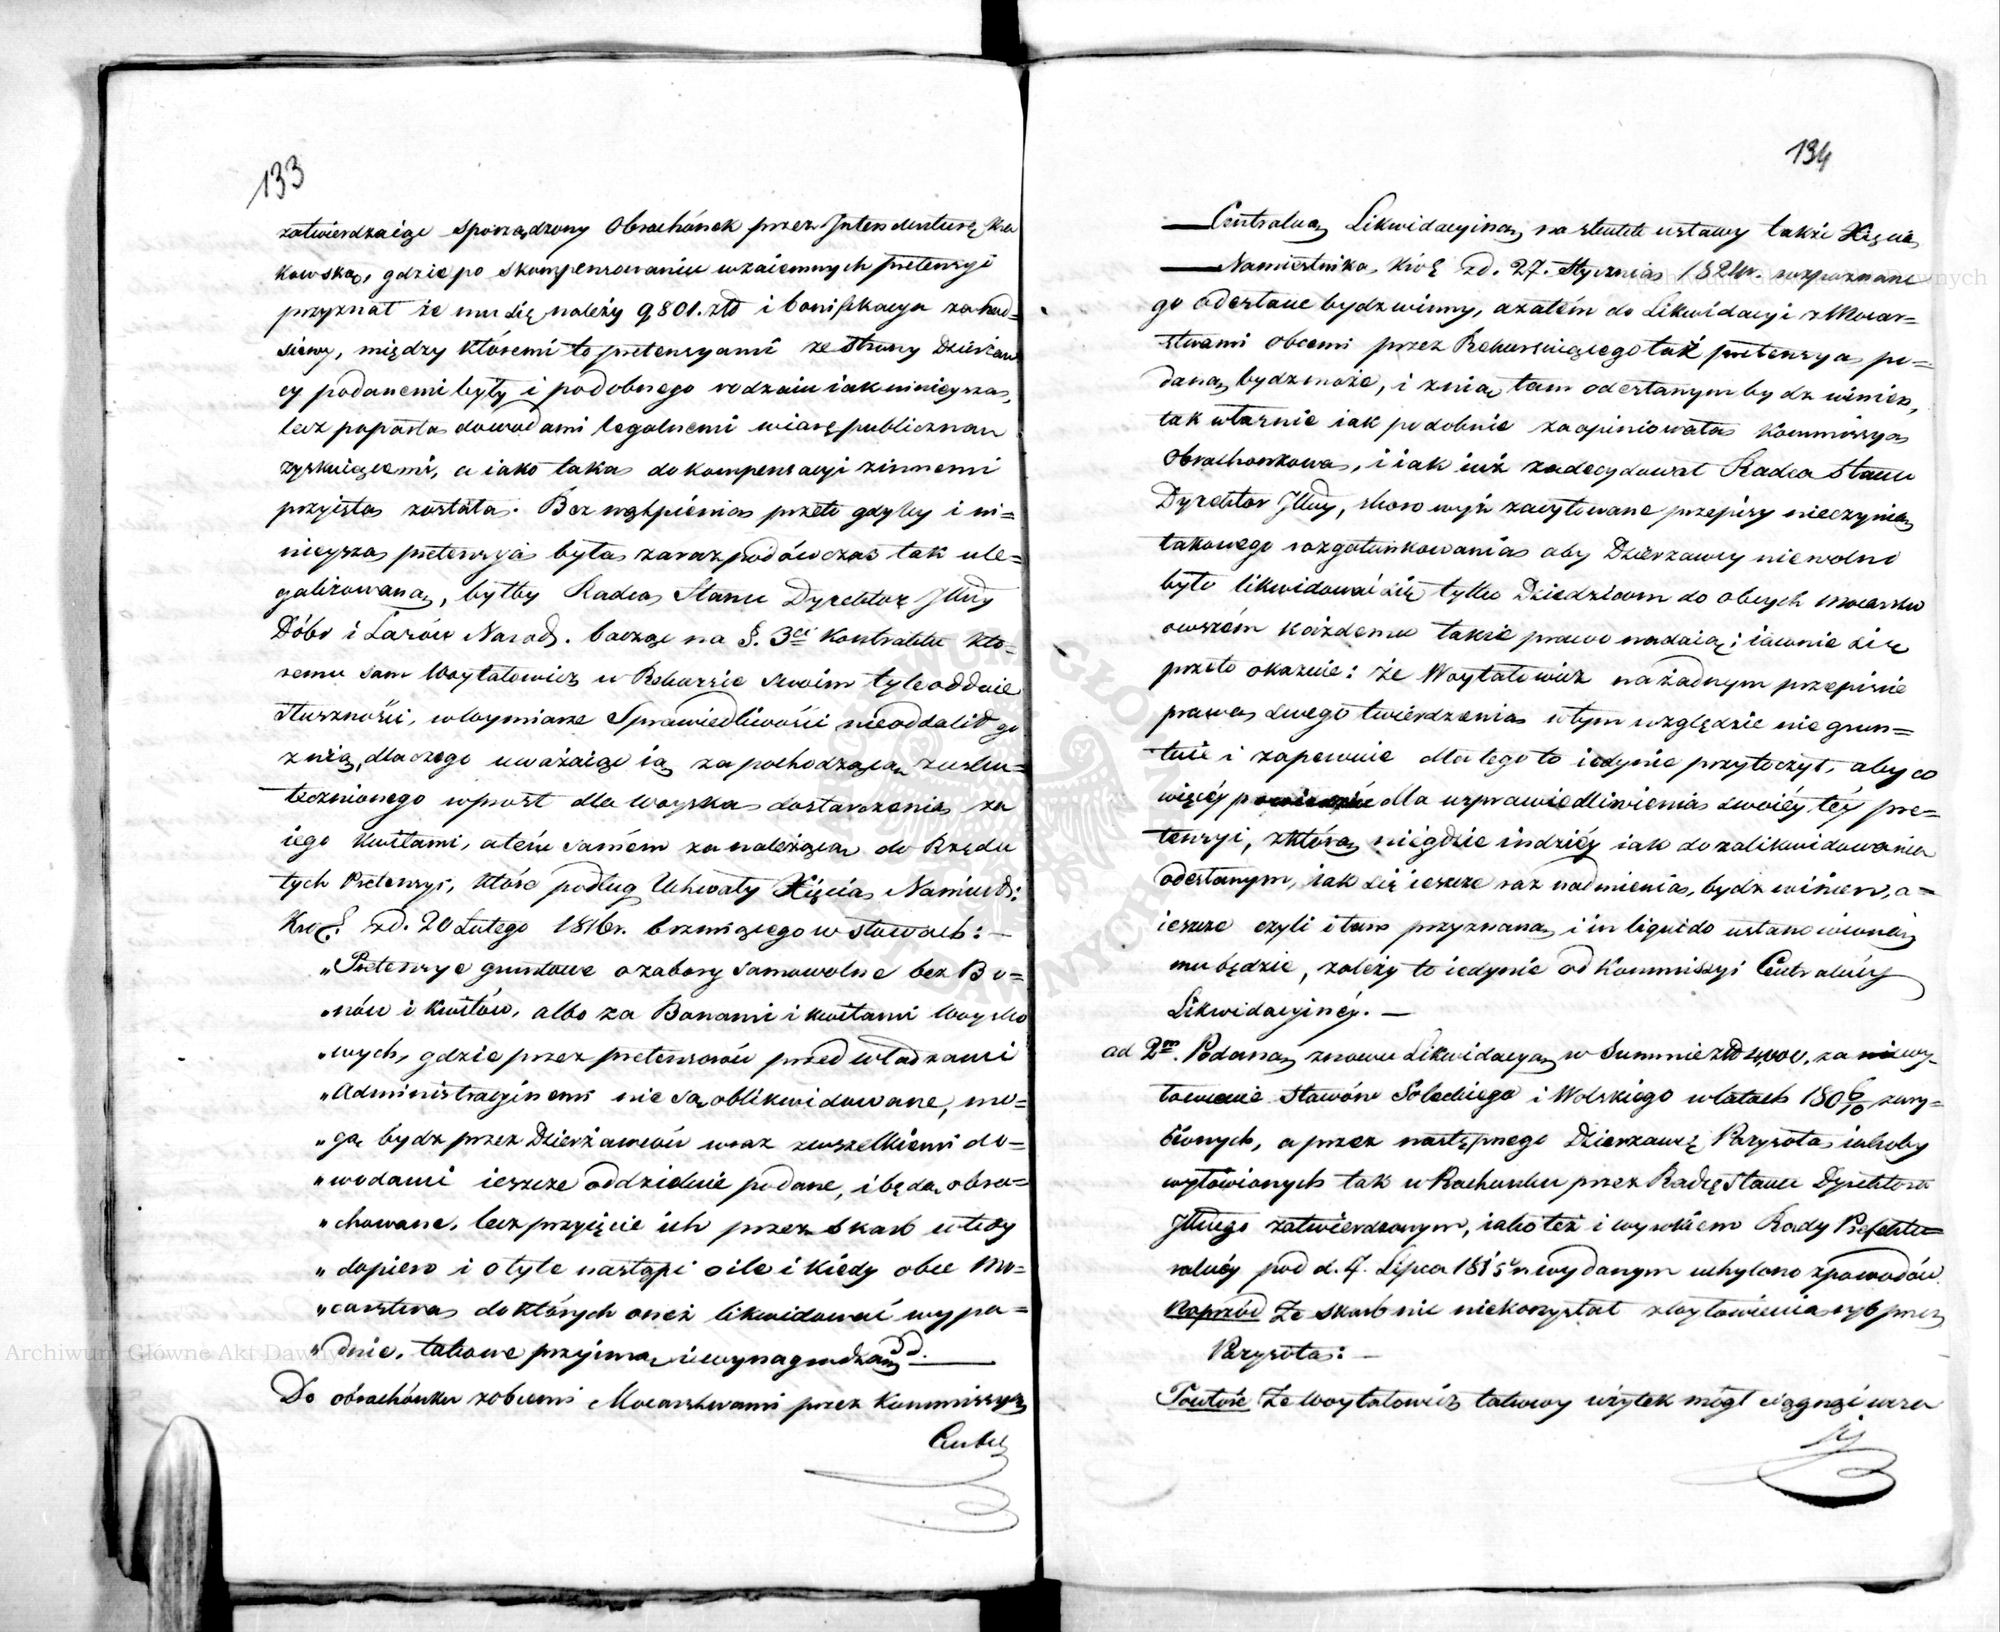 133
zatwierdzaiąc sporządzony Obrachónek przez Intendenturę Kra
kowską, gdzie po skompensowaniu wzaiemnych pretensyi
przyznał że mu się należy 9801. złt i bonifikacya za nad=
siewy, między któremi to pretensyami ze strony Dzierżaw
cy podanemi były i podobnego rodzaiu iak ninieysza,
lecz poparta dowodami legalnemi wiarę publiczną
zyskuiącemi, a iako taka do kompensacyi z innemi
przyięta została. Bez wątpienia przeto gdyby i ni=
nieysza pretensya była zaraz podówczas tak ule=
galizowaną, byłby Radca Stanu Dyrektor Jlny
Dóbr i Lasów Narod. bacząc na §. 3ci Kontraktu któ=
remu sam Woytałowicz w Rekursie swoim tyle oddaie
słuszności, w wymiarze Sprawiedliwości nieoddalił go
z nią, dlaczego uważaiąc ią za pochodzącą z usku=
tecznionego wprost dla woyska dostarczenia za
iego kwitami, a tém samém za należącą do Rzędu
tych Pretensyi, które podług Uchwały Xięcia Namiest:
Kró: z d. 20 Lutego 1816r. brzmiącego w słowach: —
„Pretensye gruntowe o zabory samowolne bez Bo=
„nów i kwitów, albo za Bonami i kwitami Woysko
„wych, gdzie przez pretensorów przed władzami
„Administracyinemi nie są oblikwidowane, mo=
„gą bydz przez Dzierżawców wraz z wszelkiemi do=
„wodami ieszcze oddzielnie podane, i będą obra=
„chowane, lecz przyięcie ich przez Skarb wtedy
„dopiero i o tyle nastąpi o ile i kiedy obce Mo=
„carstwa do których oneż likwidować wypa=
„dnie, takowe przyimą i wynagrodzą
Do obrachónku z obcemi Mocarstwami przez Kommissyą
Centr
134
Centralną Likwidacyiną na skutek ustawy także Xięcia
Namiestnika Kró z d. 27. Stycznia 1821r. rozpoznane
go odesłane bydz winny, a zatém do Likwidacyi z Mocar=
stwami obcemi przez Rekursuiącego taż pretensya po=
daną bydz może, i z nią tam odesłanym bydz winien,
tak właśnie iak podobnie zaopiniowała Kommissya
Obrachonkowa, i iak iuż zadecydował Radca Stanu
Dyrektor Jlny, skoro wyż zacytowane przepisy nieczynią
takowego rozgatunkowania aby Dzierżawcy niewolno
było likwidować się tylko Dziedzicom do obcych mocarstw
owszém każdemu takie prawo nadaią; iawnie się
przeto okazuie: że Woytałowicz na żadnym przepisie
prawa swego twierdzenia w tym względzie nie grun=
tuie i zapewnie dla tego to iedynie przytoczył, aby co
więcéy dla usprawiedliwienia swoiéy téy pre=
tensyi, z którą niegdzie indziéy iak do zalikwidowania
odesłanym, iak się ieszcze raz nadmienia, bydz winien, a=
ieszcze czyli i tam przyznaną i in liquido ustanowioną
mu będzie, zależy to iedynie od Kommissyi Centralnéy
Likwidacyinéy. —
ad 2m. Podana znowu Likwidacya w Summie złt 4,000, za niewy=
łowienie stawów Soleckiego i Wolskiego w latach 1806/10 zary=
bionych, a przez następnego Dzierżawcę Parysota iakoby
wyłowionych tak w Rachunku przez Radcę Stanu Dyrektora
Jlnego zatwierdzonym, iako też i wyrokiem Rady Prefektu=
ralnéy pod d. 7. Lipca 1815r wydanym uchylono z powodów
Naprzód Że skarb nie niekorzystał z wyłowienia ryb przez
Parysota: —
Powtóre Że Woytałowicz takowy użytek mógł ciągnąć wra